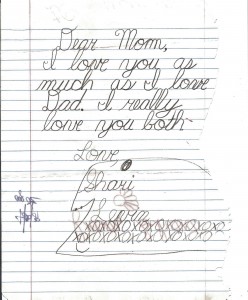 Dear Mom,
I love you as
much as I love
Dad. I really
love you both
Love,
Shari
xoxoxoxoxoxo